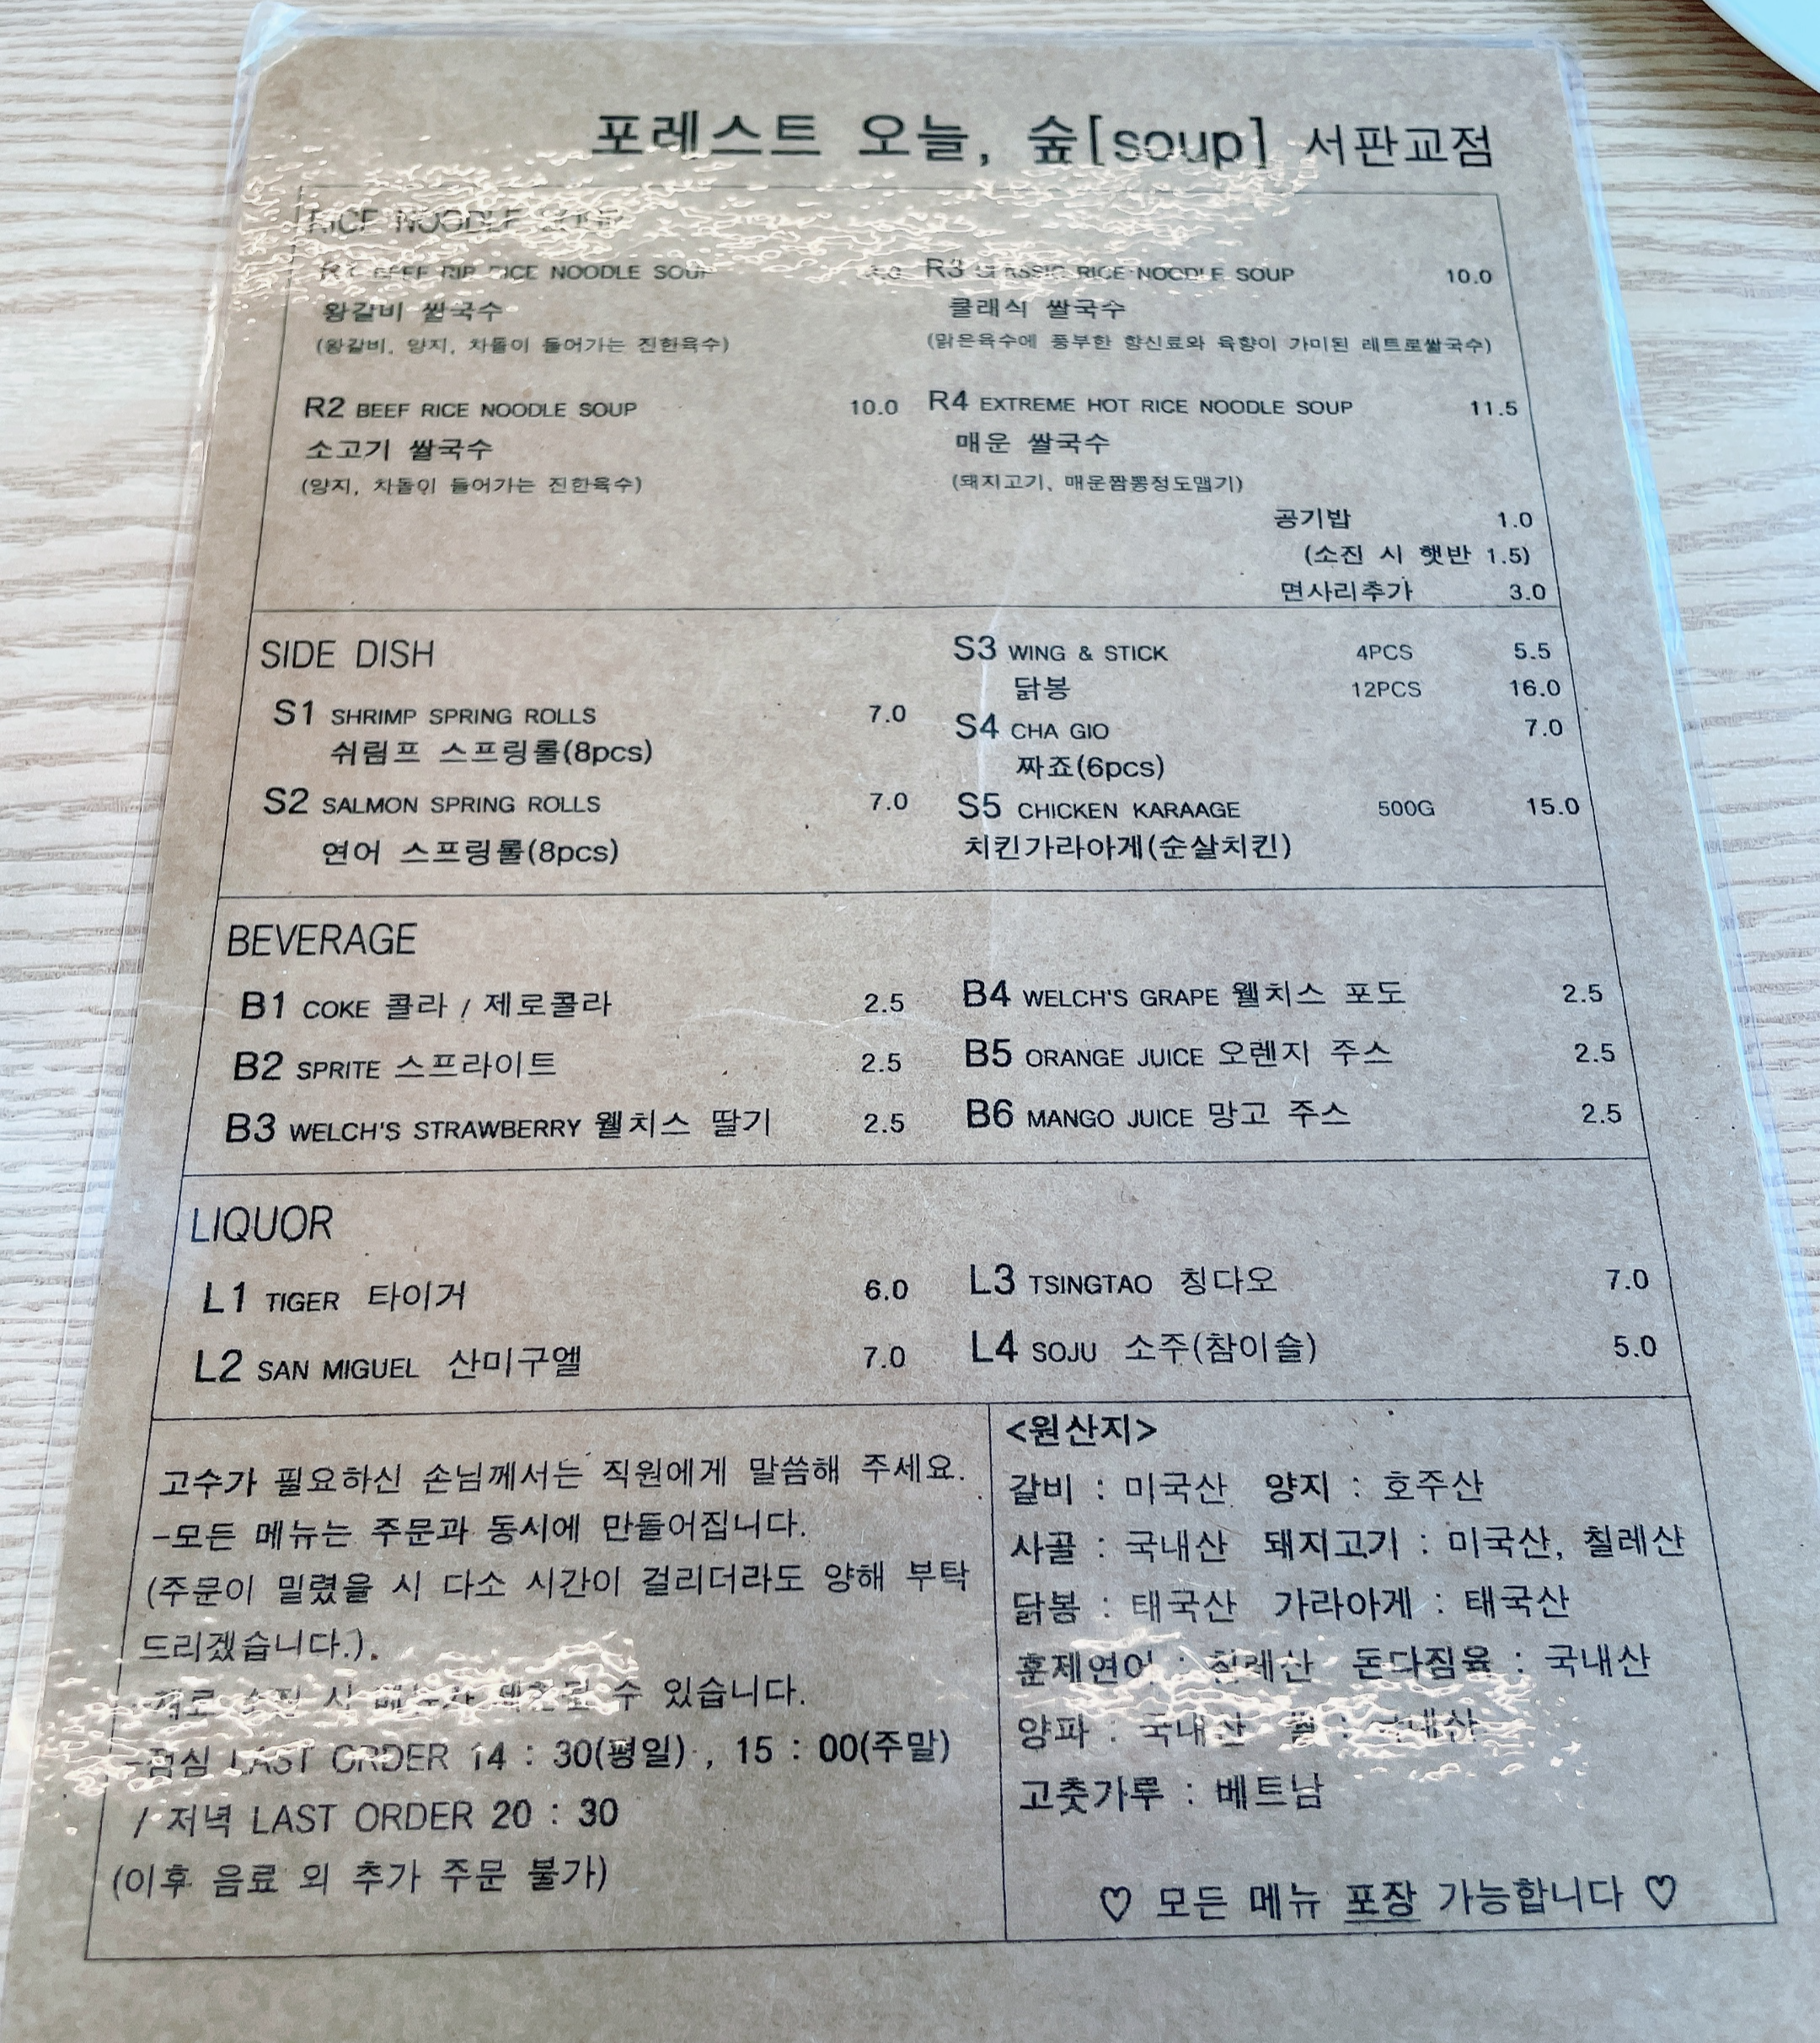 포레스트 오늘, 숲[soup] 서판교점
RICE NOODLE SOUP
R1 BEEF RIB RICE NOODLE SOUP
왕갈비 쌀국수
(왕갈비, 양지, 차돌이 들어가는 진한육수)
R2 BEEF RICE NOODLE SOUP 10.0
소고기 쌀국수
(양지, 차돌이 들어가는 진한육수)
R3 CLASSIC RICE NOODLE SOUP 10.0
클래식 쌀국수
(맑은육수에 풍부한 향신료와 육향이 가미된 레트로쌀국수)
R4 EXTREME HOT RICE NOODLE SOUP 11.5
매운 쌀국수
(돼지고기, 매운짬뽕정도맵기)
공기밥 1.0
(소진 시 햇반 1.5)
면사리추가 3.0
SIDE DISH
S1 SHRIMP SPRING ROLLS 7.0
쉬림프 스프링롤(8pcs)
S2 SALMON SPRING ROLLS 7.0
연어 스프링롤(8pcs)
S3 WING & STICK 4PCS 5.5
닭봉 12PCS 16.0
S4 CHA GIO 7.0
짜죠(6pcs)
S5 CHICKEN KARAAGE 500G 15.0
치킨가라아게(순살치킨)
BEVERAGE
B1 COKE 콜라 / 제로콜라 2.5
B2 SPRITE 스프라이트 2.5
B3 WELCH'S STRAWBERRY 웰치스 딸기 2.5
B4 WELCH'S GRAPE 웰치스 포도 2.5
B5 ORANGE JUICE 오렌지 주스 2.5
B6 MANGO JUICE 망고 주스 2.5
LIQUOR
L1 TIGER 타이거 6.0
L2 SAN MIGUEL 산미구엘 7.0
L3 TSINGTAO 칭다오 7.0
L4 SOJU 소주(참이슬) 5.0
고수가 필요하신 손님께서는 직원에게 말씀해 주세요.
-모든 메뉴는 주문과 동시에 만들어집니다.
(주문이 밀렸을 시 다소 시간이 걸리더라도 양해 부탁
드리겠습니다.).
-재료 소진 시 메뉴가 수 있습니다.
-점심 LAST ORDER 14 : 30(평일) , 15 : 00(주말)
/ 저녁 LAST ORDER 20 : 30
(이후 음료 외 추가 주문 불가)
<원산지>
갈비 : 미국산 양지 : 호주산
사골 : 국내산 돼지고기 : 미국산, 칠레산
닭봉 : 태국산 가라아게 : 태국산
훈제연어 : 칠레산 돈다짐육 : 국내산
양파 : 국내산 쌀 : 국내산
고춧가루 : 베트남
♡ 모든 메뉴 포장 가능합니다 ♡